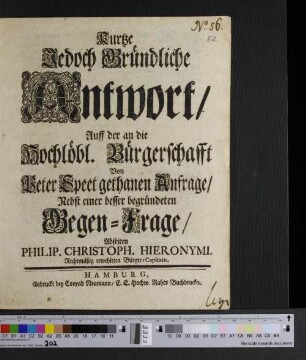 No 56.
52
Kurtze
Jedoch Gründliche
Antwort/
Auff der an die
Hochlöbl. Bürgerschafft
Von
Peter Speet gethanen Anfrage/
Nebst einer besser begründeten
Gegen-Frage/
Abseiten
PHILIP. CHRISTOPH. HIERONYMI.
Rechtmäßig erwehlten Bürger-Capitain.
HAMBURG,
Gedruckt bey Conrad Neumann/ E. E. Hochw. Rahts Buchdrucker.
202